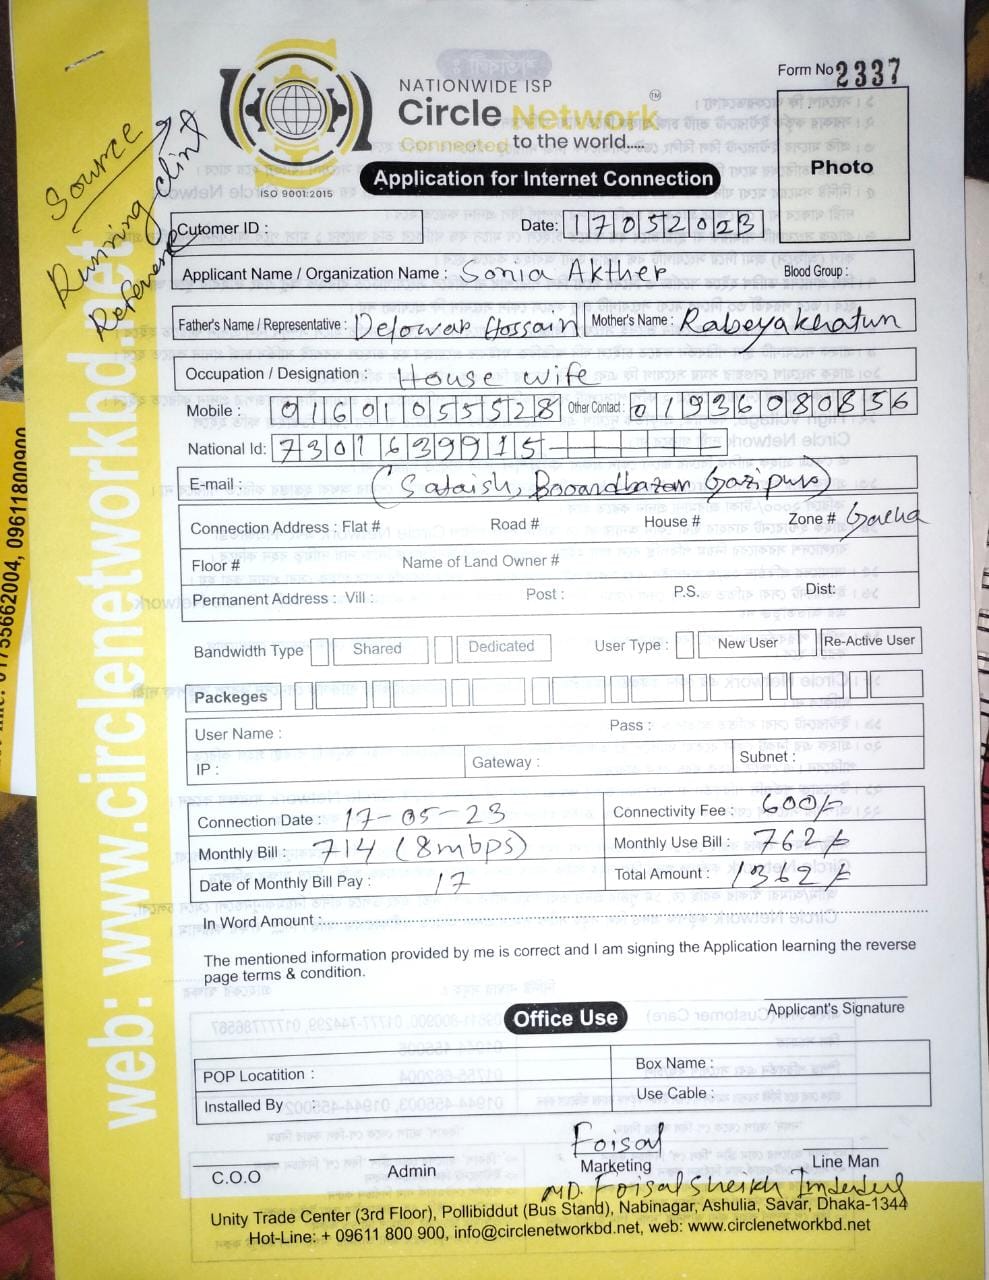 Form No 2337
NATIONWIDE ISP
Circle Network™
Connected to the world.....
ISO 9001:2015
Application for Internet Connection
Photo
Source
Running Clint
Reference
Cutomer ID :
Date: 17052023
Applicant Name / Organization Name : Sonia Akther
Blood Group :
Father's Name / Representative : Delowar Hossain
Mother's Name : Rabeya khatun
Occupation / Designation : House wife
Mobile : 01601055528
Other Contact : 01936080856
National Id: 7301639915
E-mail : (Sataish, Gazipur)
Connection Address : Flat # Road # House # Zone #
Floor # Name of Land Owner #
Permanent Address : Vill : Post : P.S. Dist:
Bandwidth Type Shared Dedicated User Type : New User Re-Active User
Packeges
User Name : Pass :
IP : Gateway : Subnet :
Connection Date : 17-05-23
Connectivity Fee : 600/-
Monthly Bill : 714 (8mbps)
Monthly Use Bill : 762/-
Date of Monthly Bill Pay : 17
Total Amount : 1362/-
In Word Amount :
The mentioned information provided by me is correct and I am signing the Application learning the reverse
page terms & condition.
Applicant's Signature
Office Use
POP Locatition :
Box Name :
Installed By
Use Cable :
Foisal
C.O.O Admin Marketing Line Man
MD. Foisal Sheikh
Unity Trade Center (3rd Floor), Pollibiddut (Bus Stand), Nabinagar, Ashulia, Savar, Dhaka-1344
Hot-Line: + 09611 800 900, info@circlenetworkbd.net, web: www.circlenetworkbd.net
web: www.circlenetworkbd.net
01755662004, 09611800900